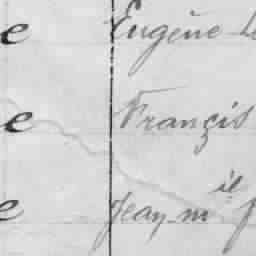 e Eugène
e François
e Jean-m